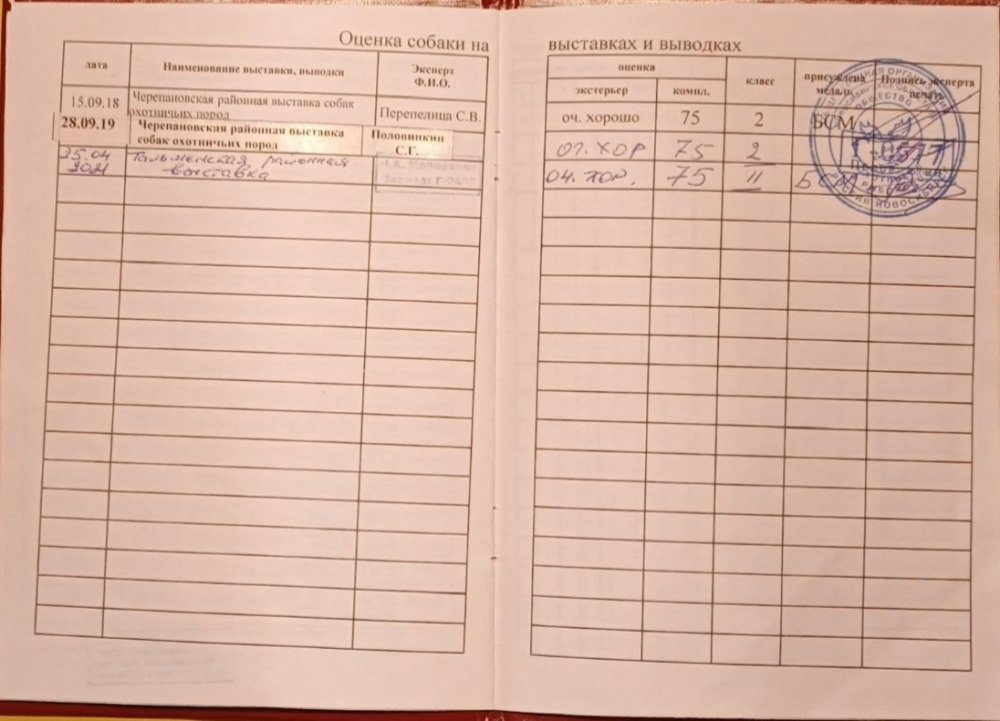 Оценка собаки на выставках и выводках
дата
Наименование выставки, выводки
Эксперт
Ф.И.О.
оценка
экстерьер
компл.
класс
присуждена
медаль
Подпись эксперта
печать
15.09.18
Черепановская районная выставка собак
охотничьих пород
Перепелица С.В.
оч. хорошо
75
2
БСМ
28.09.19
Черепановская районная выставка
собак охотничьих пород
Половинкин
С.Г.
оч. хор
75
2
25.04
2021
Тальменская районная
выставка
оч. хор.
75
II